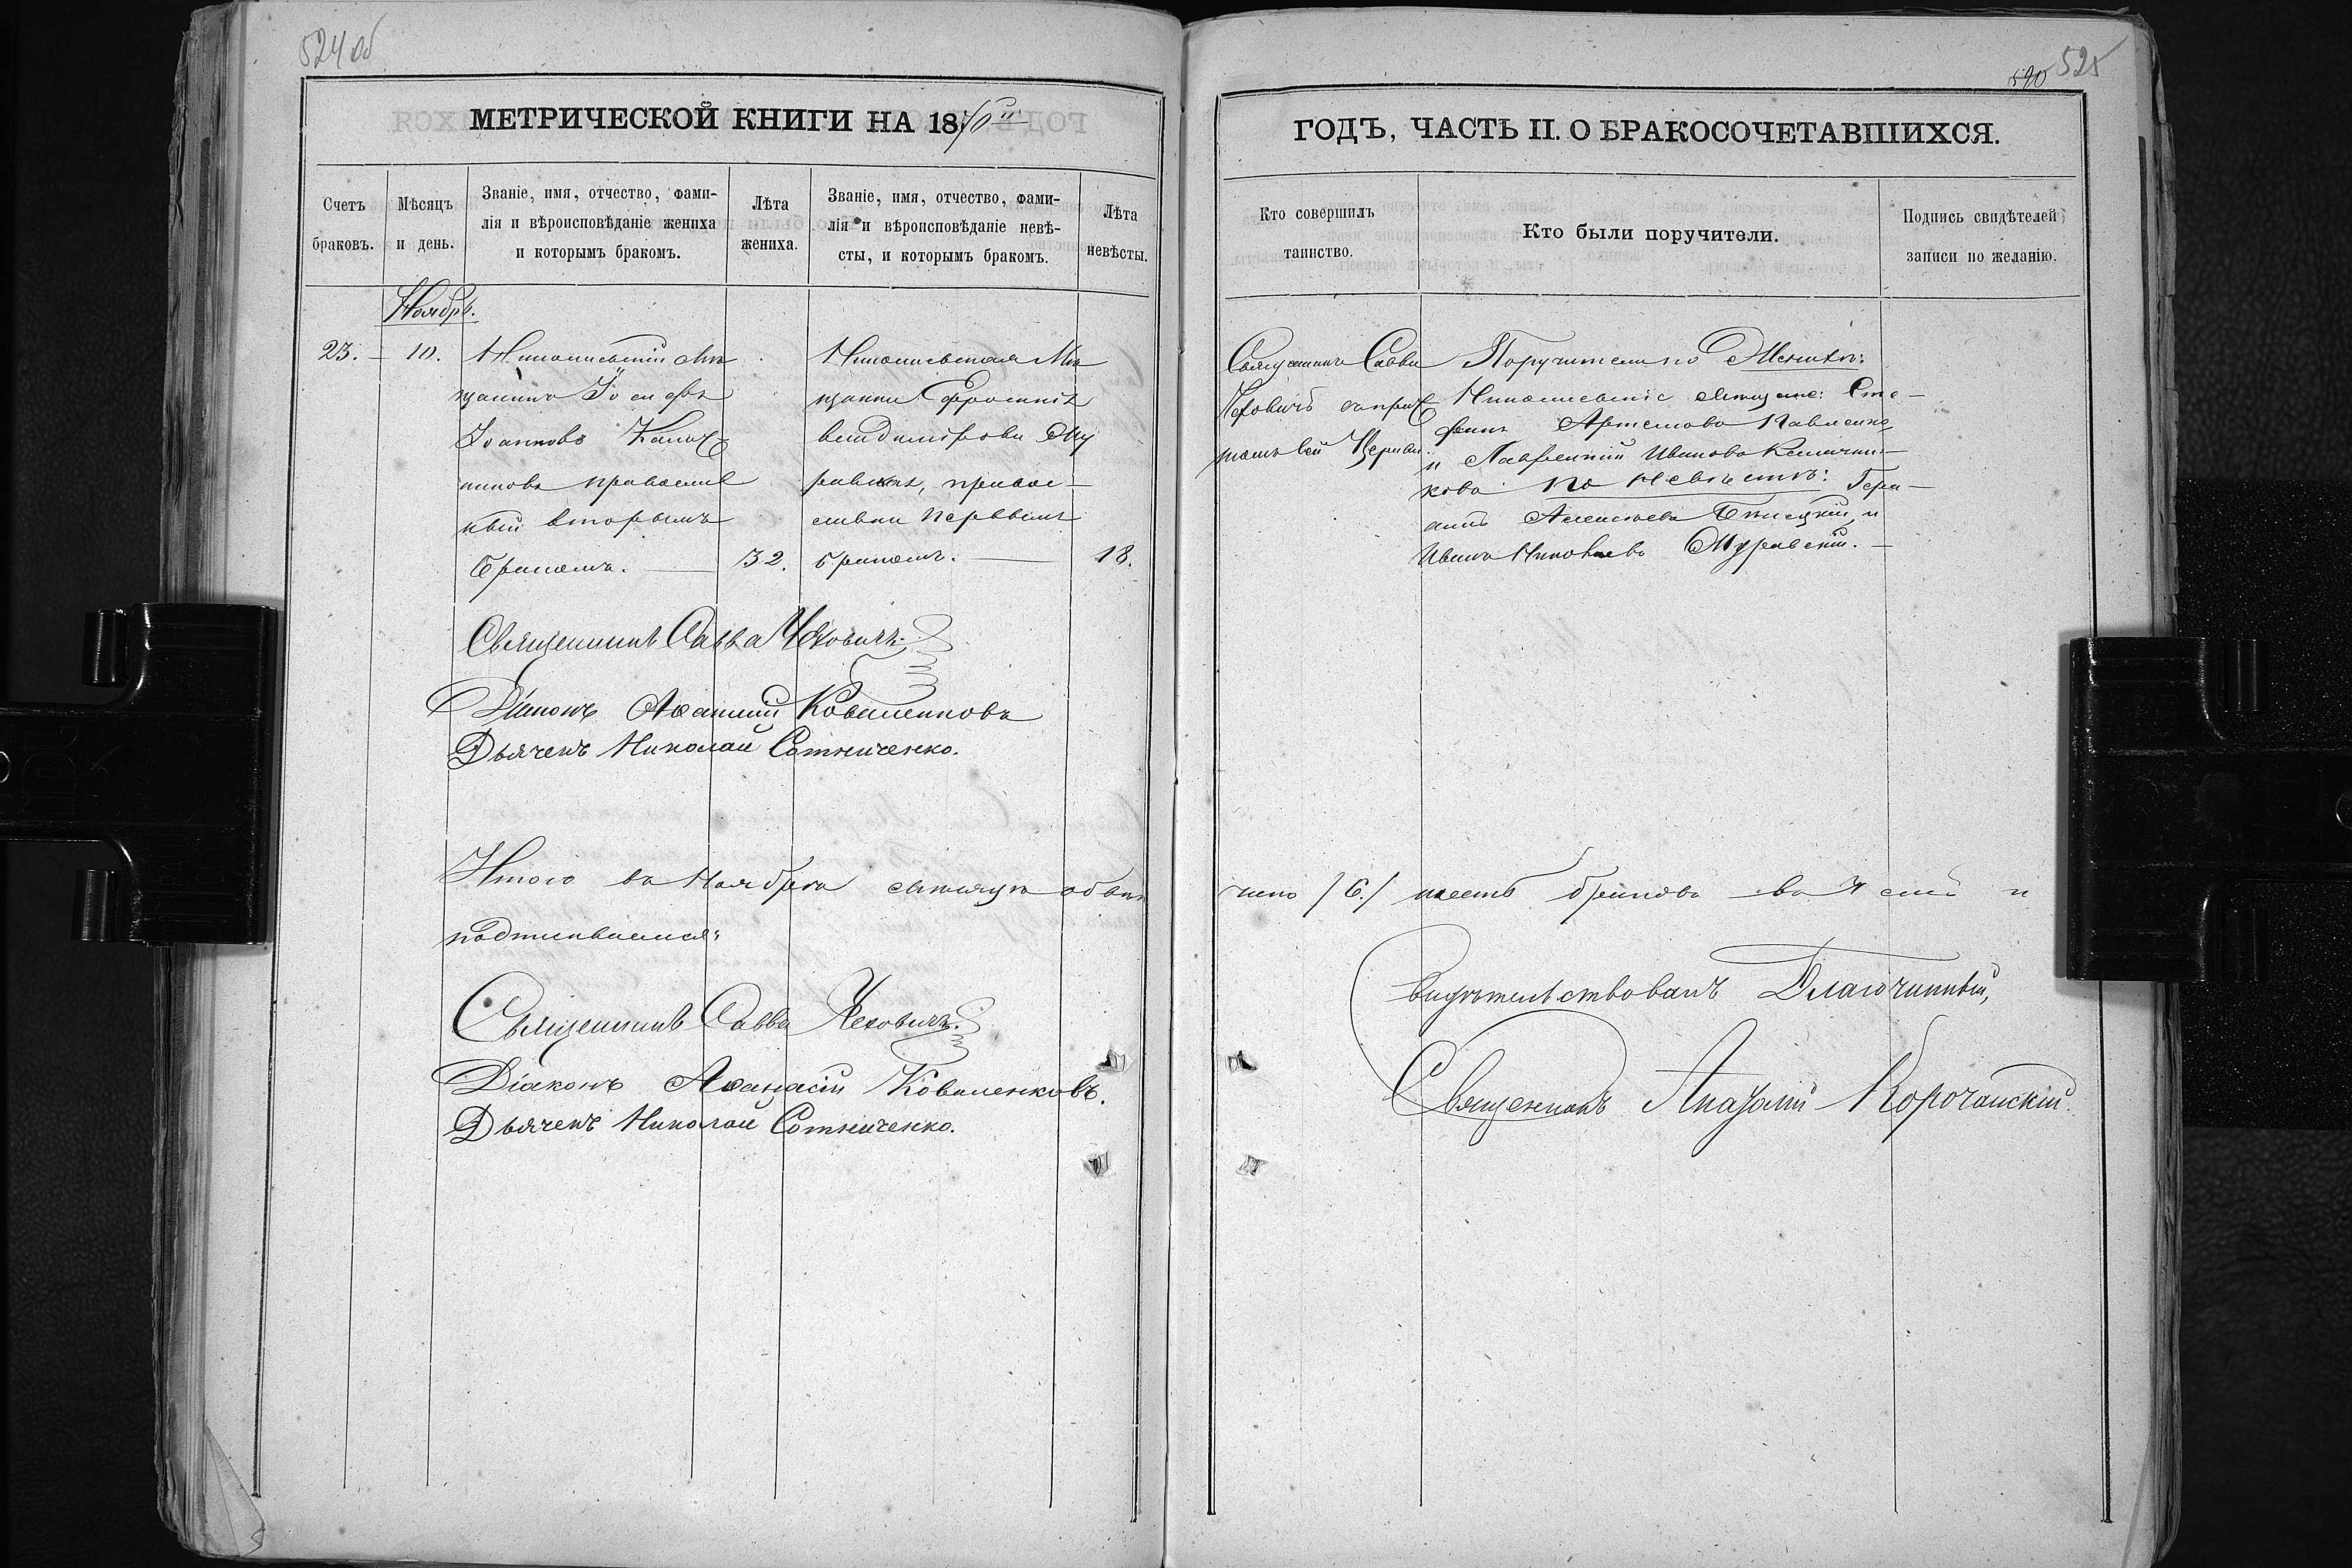 524 об
МЕТРИЧЕСКОЙ КНИГИ НА 1876
Счетъ браковъ.
Мѣсяцъ и день.
Званіе, имя, отчество, фами-
лія и вѣроисповѣданіе жениха
и которымъ бракомъ.
Лѣта
жениха.
Званіе, имя, отчество, фами-
лія и вѣроисповѣданіе невѣ-
сты, и которымъ бракомъ.
Лѣта
невѣсты.
Ноябрь.
23. 10.
Николаевскій Мѣ
щанинъ Іосифъ
Іоанновъ
никовъ православ
ный вторымъ
бракомъ. 32.
Николаевская Мѣ
щанка Ефросинія
Владимірова Му
равская, правос-
лавная первымъ
бракомъ. 18.
Священникъ Савва Чеховичъ.
Діаконъ Аѳанасій Коваленковъ
Дьячекъ Николай Сотниченко.
Итого въ Ноябрѣ мѣсяцѣ обвѣн
подписываемся:
Священникъ Савва Чеховичъ.
Діаконъ Аѳанасій Коваленковъ.
Дьячекъ Николай Сотниченко.
590 525
ГОДЪ, ЧАСТЬ II. О БРАКОСОЧЕТАВШИХСЯ.
Кто совершилъ
таинство.
Кто были поручители.
Подпись свидѣтелей
записи по желанію.
Священникъ Савва
Чеховичъ съ прич
томъ сей Церкви.
Поручители по Женихѣ:
Николаевскіе Мѣщане: Сте-
фанъ Артемовъ Павленко
и Лаврентій Ивановъ
ковъ по Невѣстѣ: Гера-
симъ Алексѣевъ и
Иванъ Николаевъ Муравскій.
чано /6./ шесть браковъ въ чемъ и
Свидѣтельствовалъ Благочинный,
Священникъ Корочанскій.